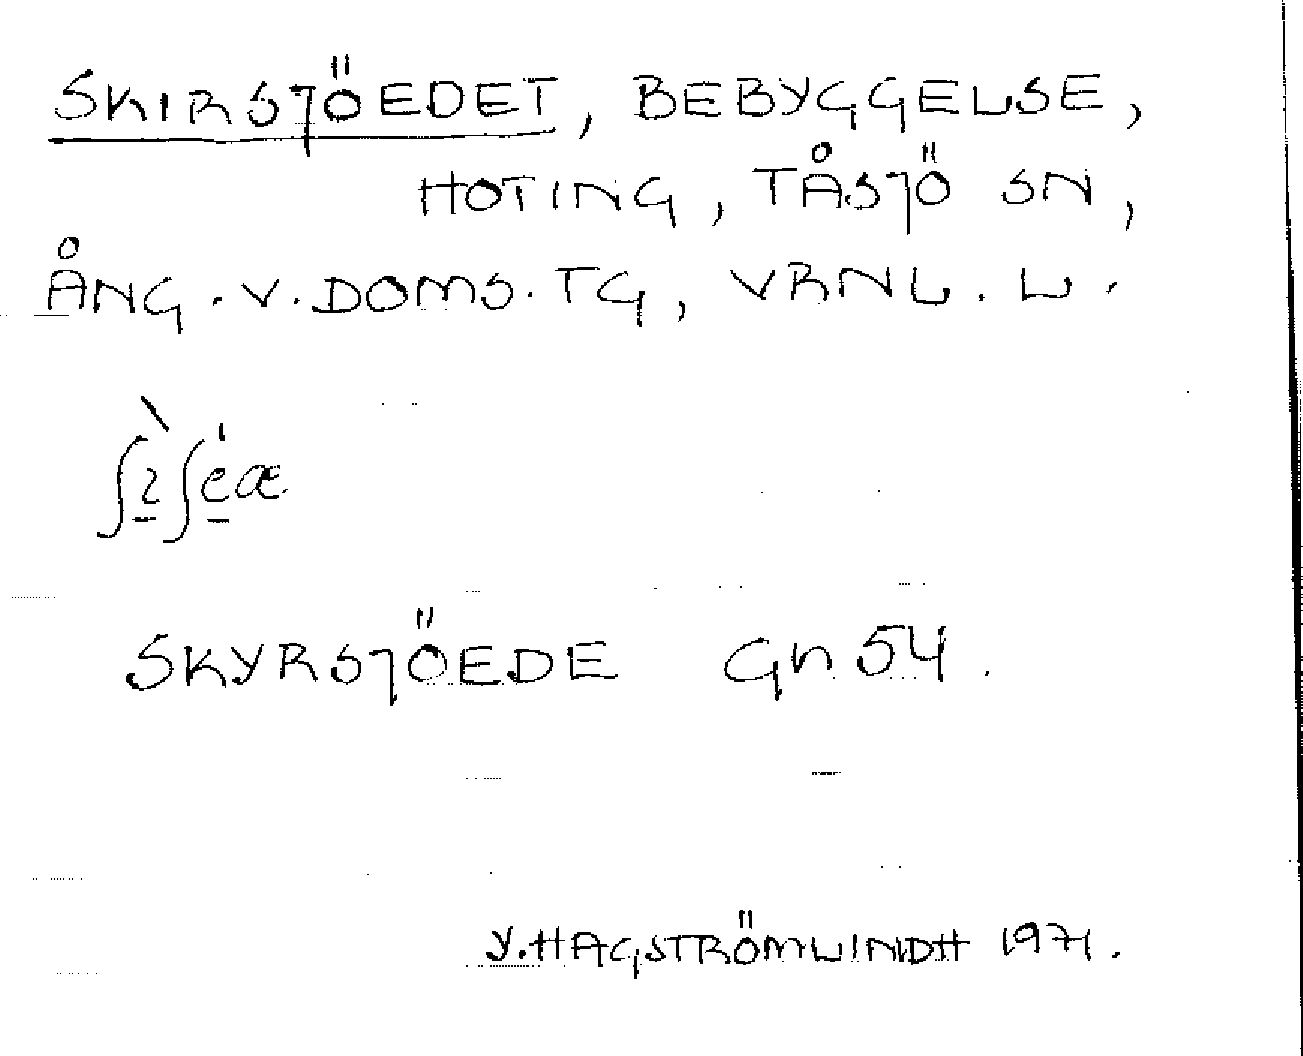 SKIRSJÖEDET, BEBYGGELSE,
HOTING, TÅSJÖ SN,
ÅNG. V. DOMS. TG, VRNL. L.
SKYRSJÖEDE Gn 54.
Y. HAGSTRÖMLINDH 1971.